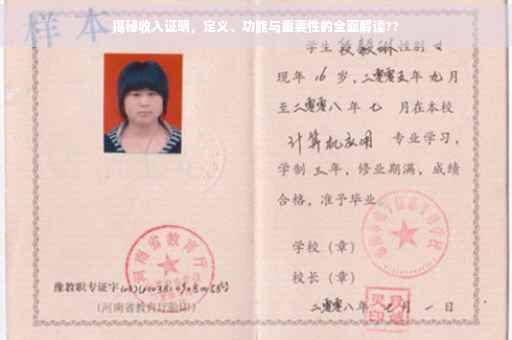 揭秘收入证明，定义、功能与重要性的全面解读??
样本
学生 段毅琳 性别 女
现年 16 岁，二零零五年 九 月
至二零零八年 七 月在本校
计算机应用 专业学习，
学制 三 年，修业期满，成绩
合格，准予毕业
学校（章）
校长（章）
二零零八年 月 一 日
河南省教育厅
豫教职专证字
（河南省教育厅验印）